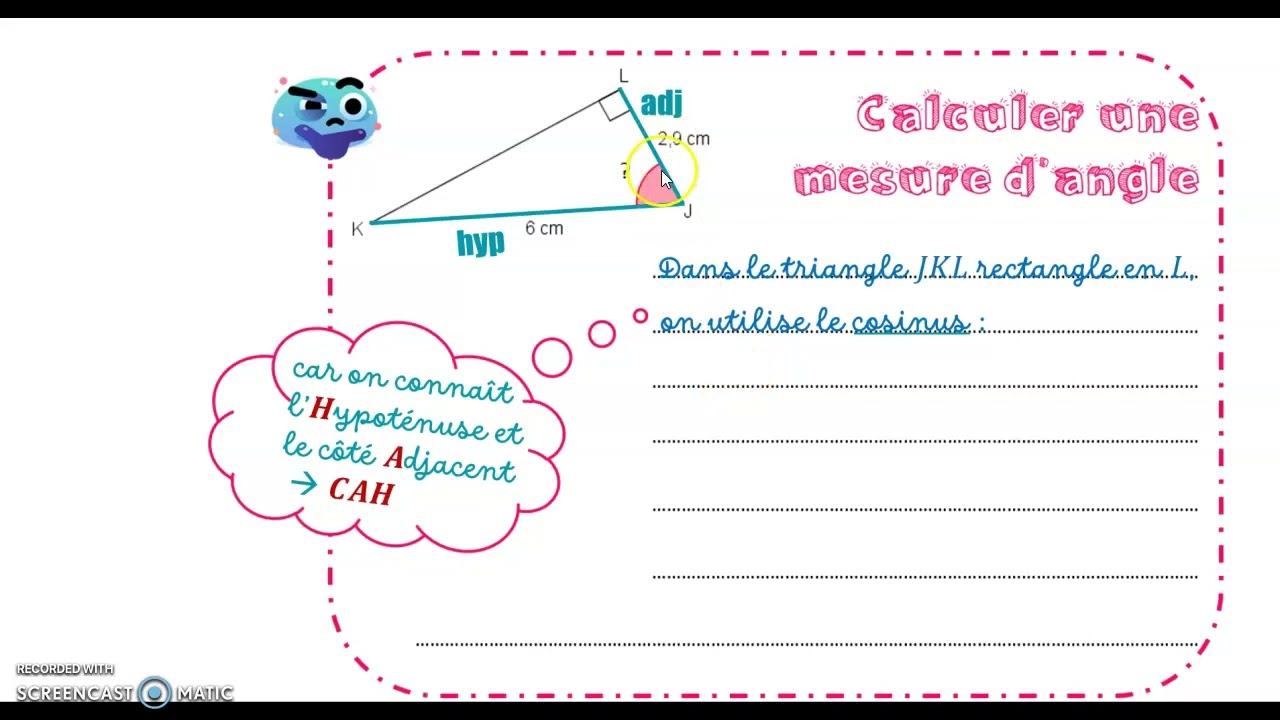 L
adj
2,9 cm
?
J
K
6 cm
hyp
Calculer une
mesure d'angle
Dans le triangle JKL rectangle en L,
on utilise le cosinus :
car on connaît
l'Hypoténuse et
le côté Adjacent
→ CAH
RECORDED WITH
SCREENCAST MATIC